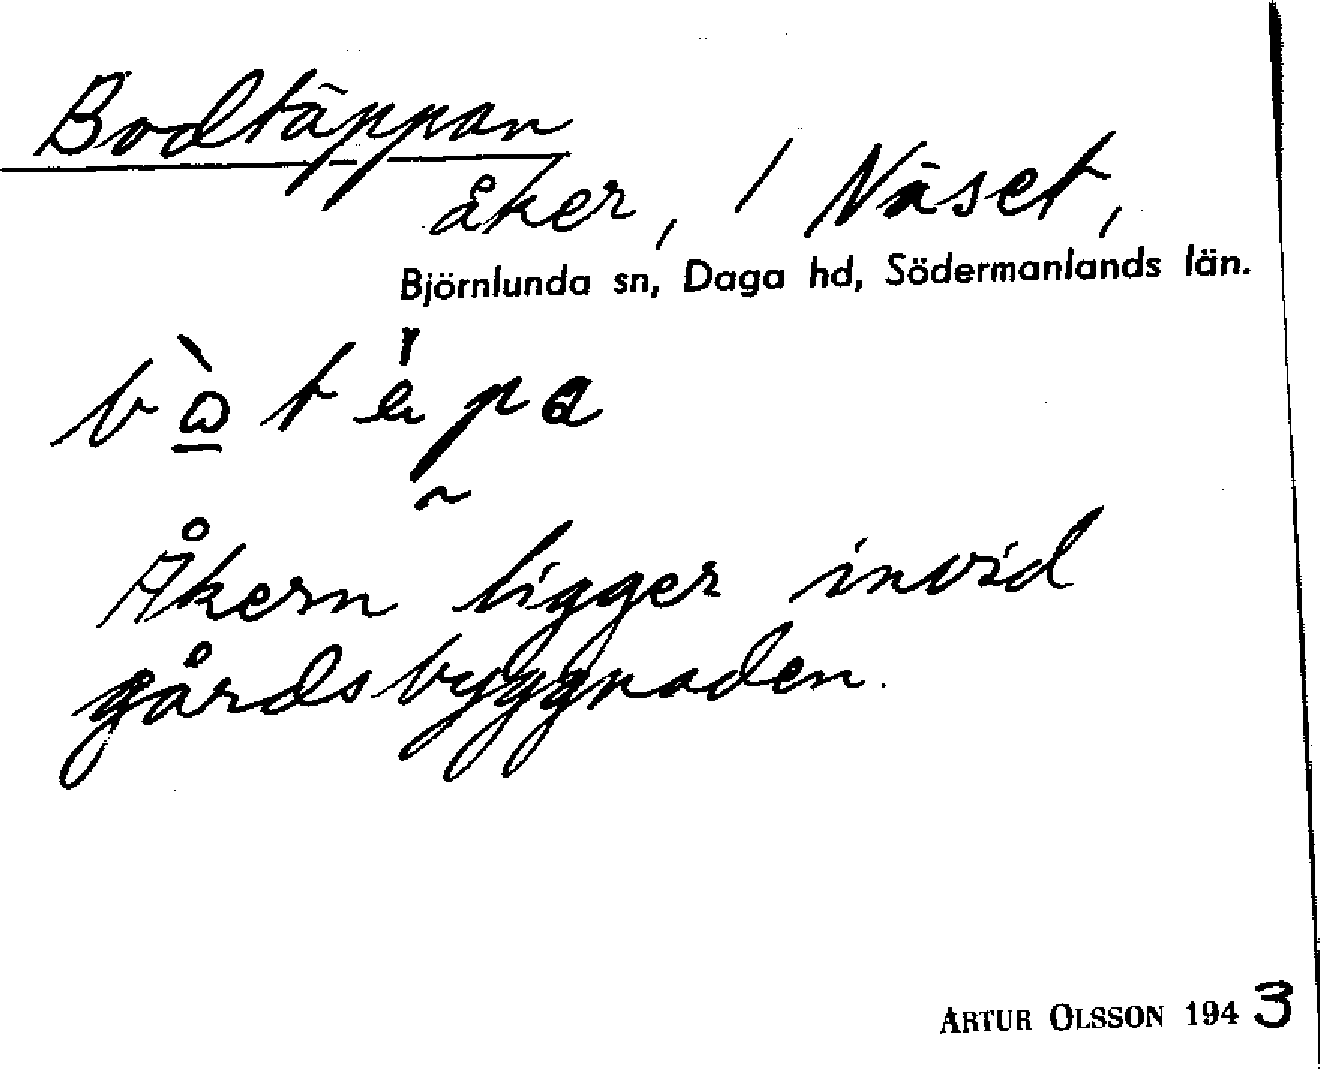 Bodtäppan
åker, / Näset,
Björnlunda sn, Daga hd, Södermanlands län.
Åkern ligger invid
gårdsbyggnaden.
ARTUR OLSSON 1943